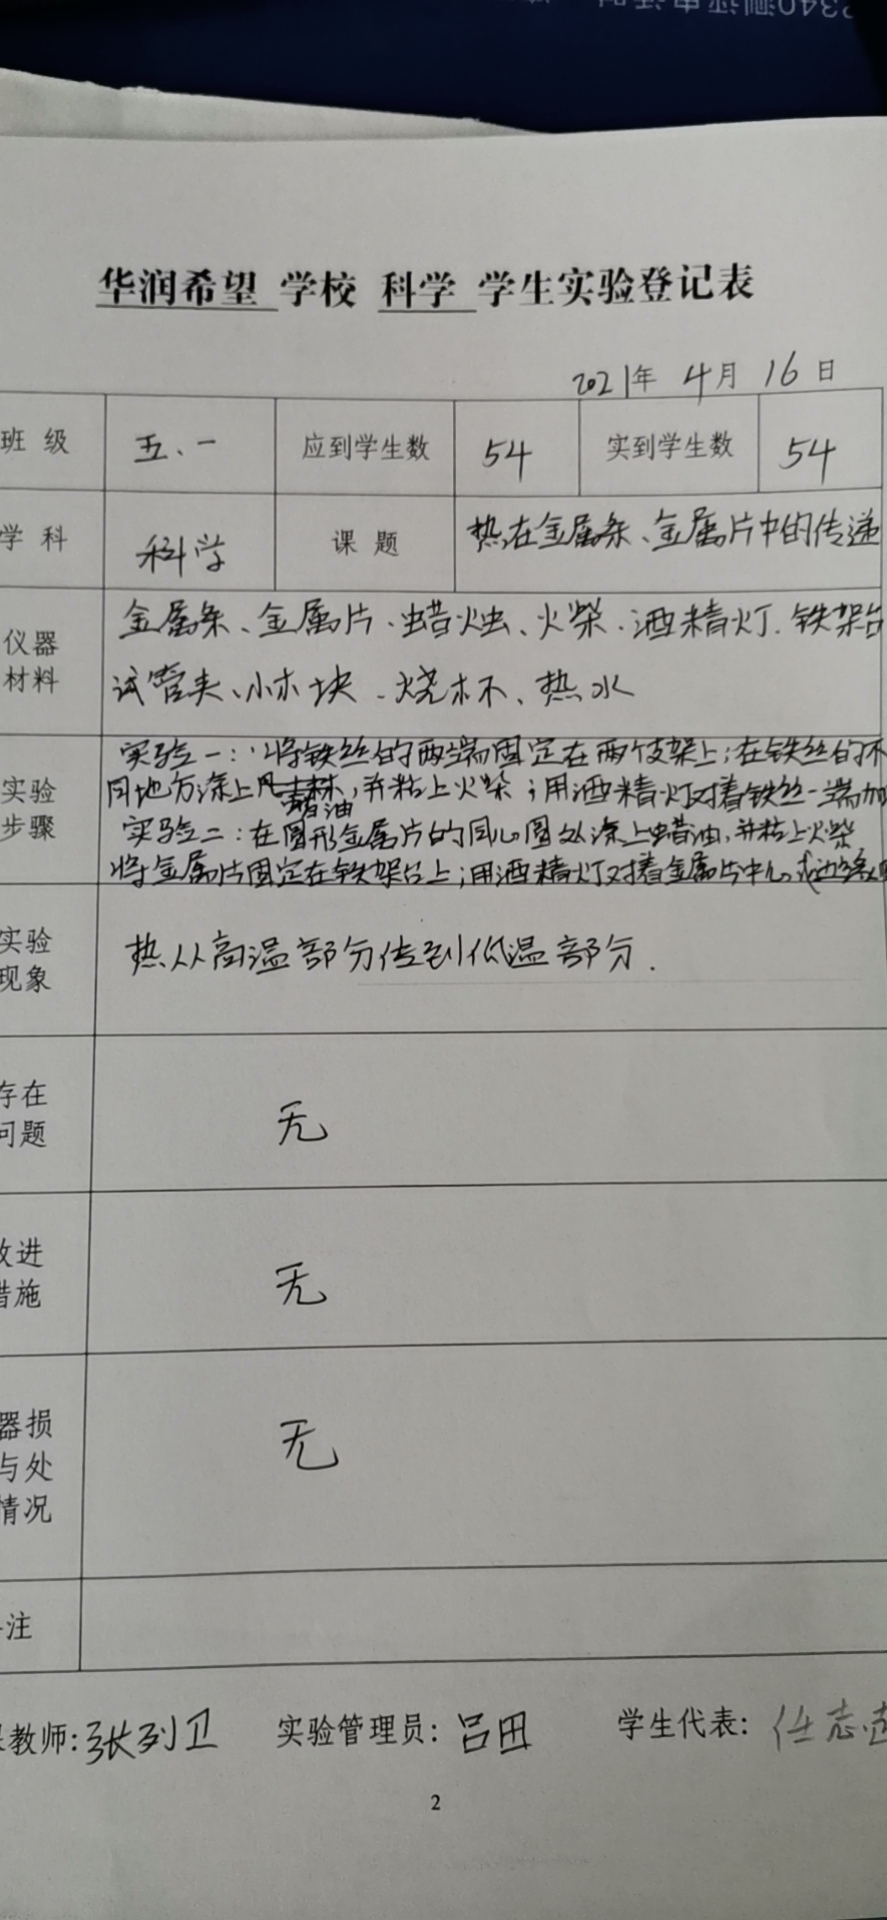 华润希望 学校 科学 学生实验登记表
2021年 4月 16日
班 级 五、一 应到学生数 54 实到学生数 54
学 科 科学 课 题 热在金属条、金属片中的传递
仪器
材料
金属条、金属片、蜡烛、火柴、酒精灯、铁架台
试管夹、小木块、烧杯、热水
实验
步骤
实验一:将铁丝的两端固定在两个支架上;在铁丝的不
同地方涂上凡士林,并粘上火柴;用酒精灯对着铁丝一端加
蜡油
实验二:在圆形金属片的同心圆处涂上蜡油,并粘上火柴
将金属片固定在铁架台上;用酒精灯对着金属片中心或边缘
实验
现象
热从高温部分传到低温部分.
存在
问题
无
改进
措施
无
器损
与处
情况
无
注
教师:张列卫 实验管理员:吕田 学生代表:任志
2